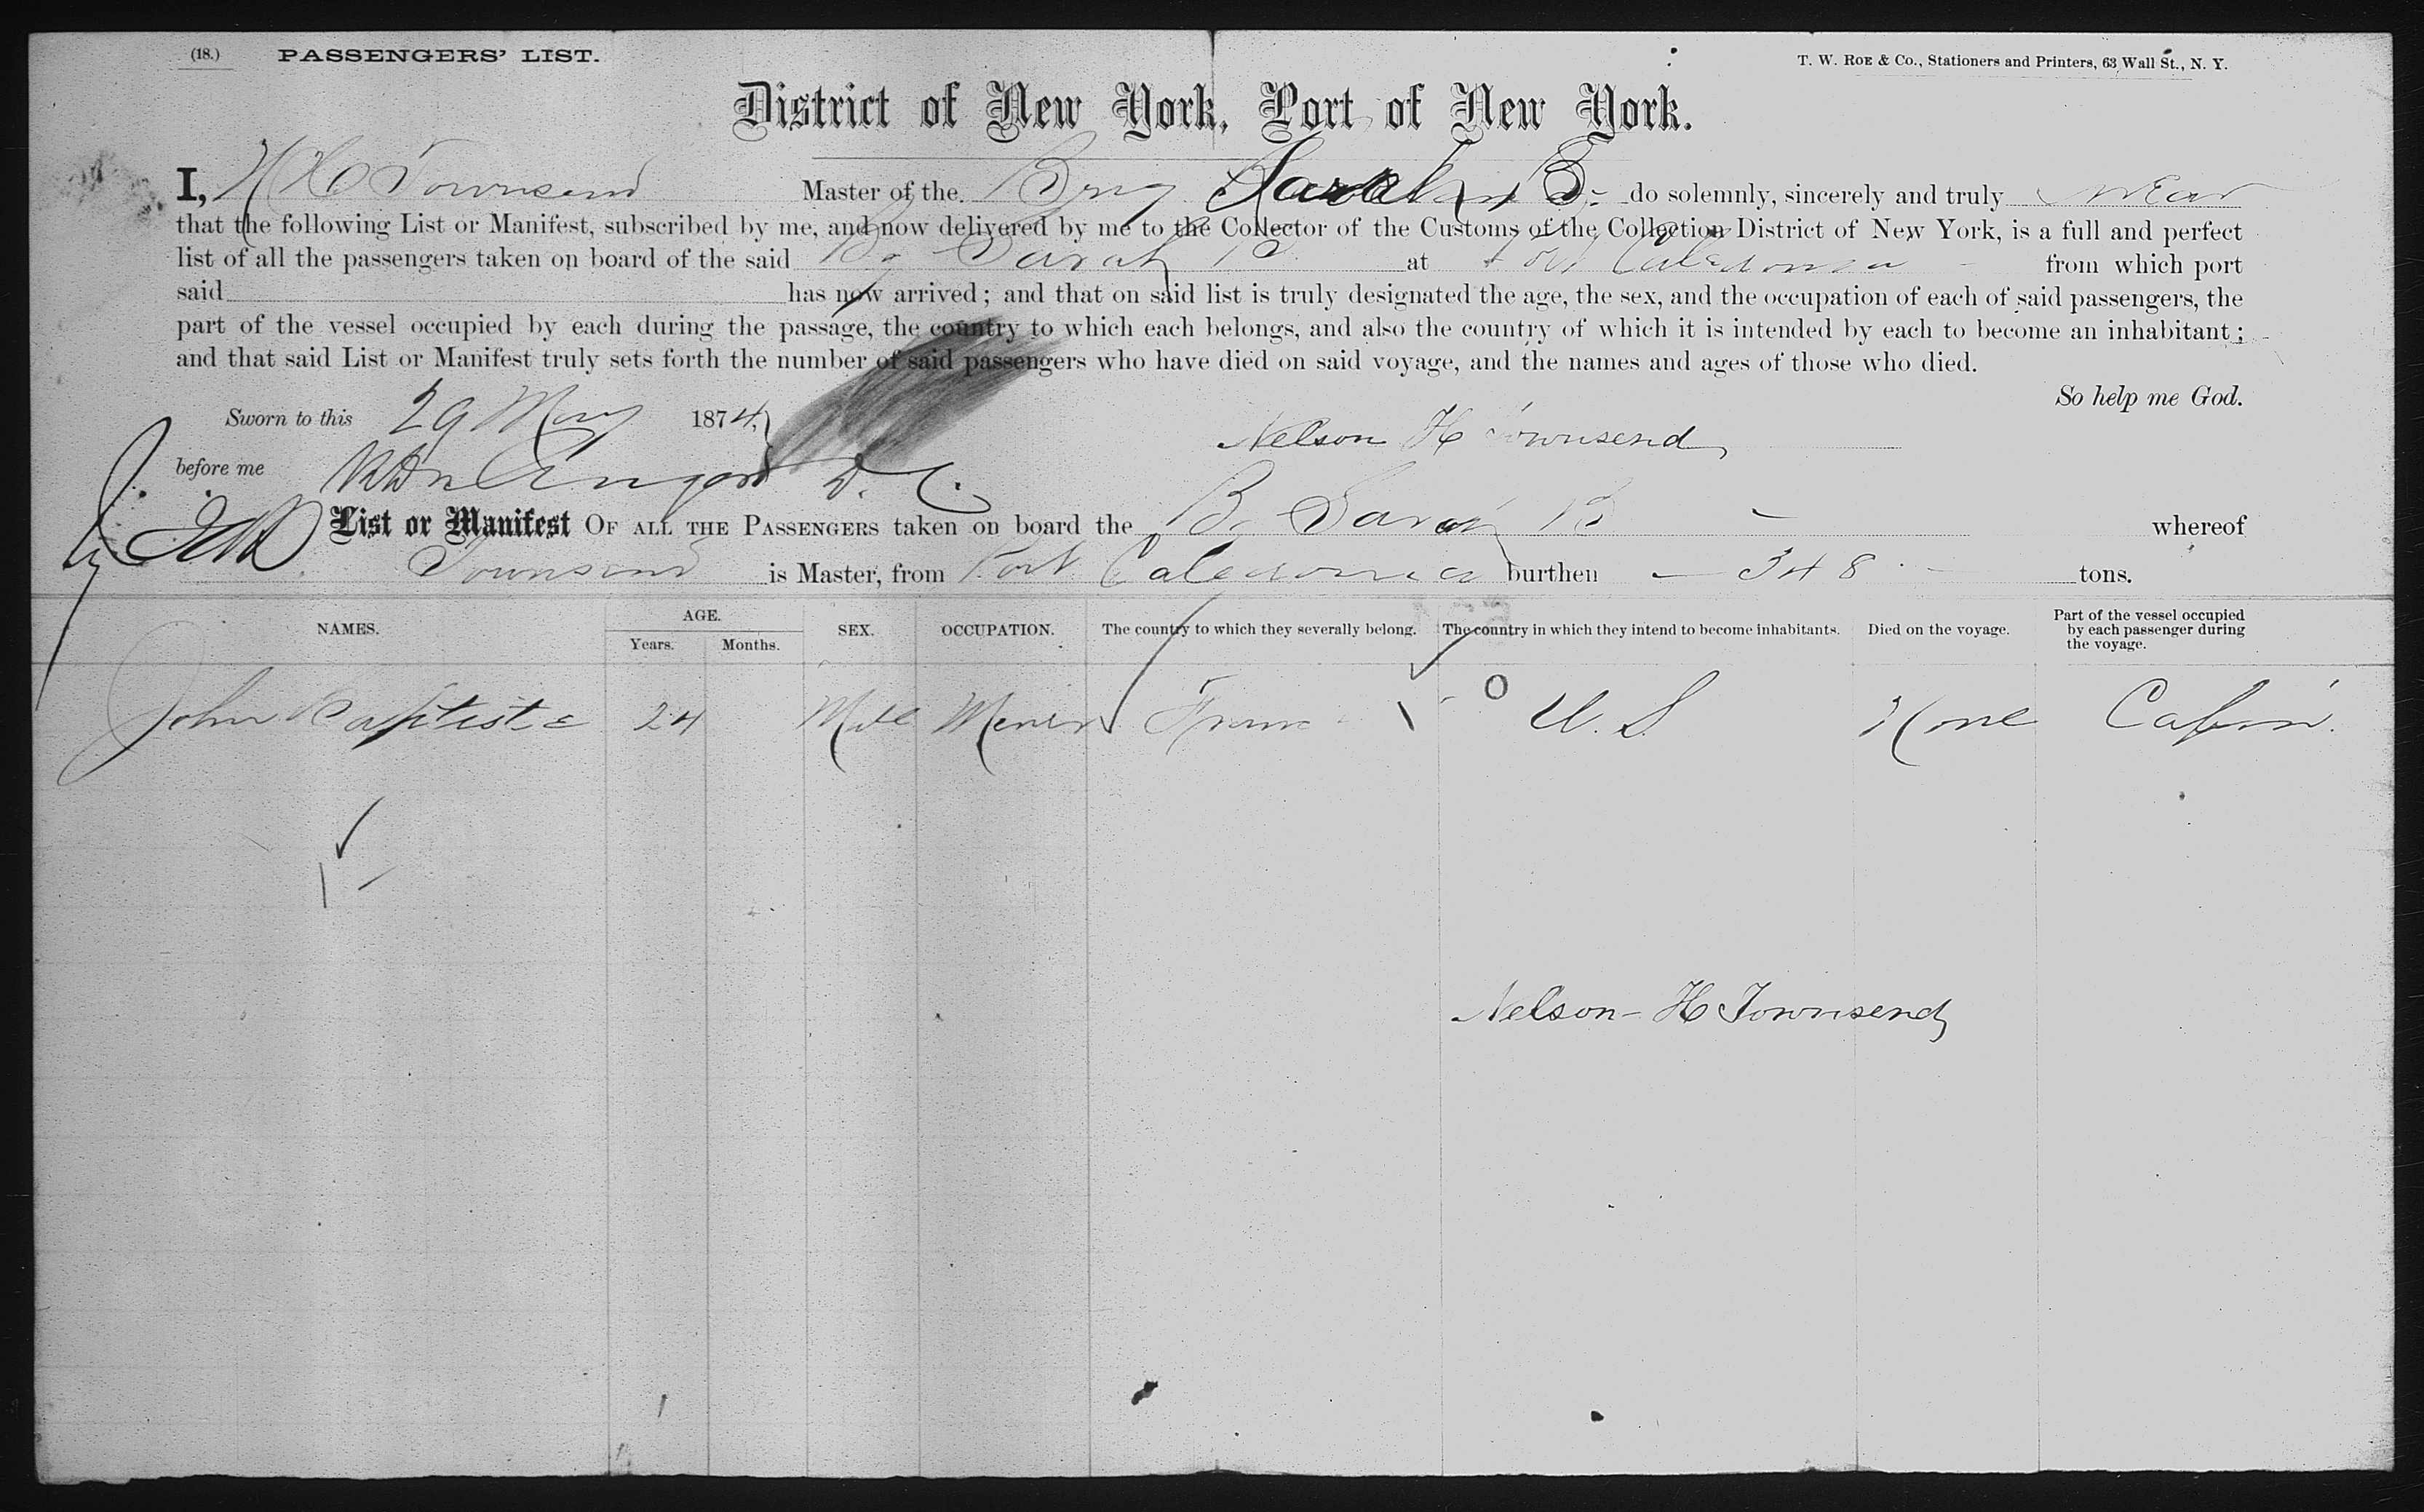 (18.) PASSENGERS' LIST. T. W. ROE & Co., Stationers and Printers, 63 Wall St., N. Y.
District of New York, Port of New York.
I, N H Townsend Master of the Brig Sarah B do solemnly, sincerely and truly swear
that the following List or Manifest, subscribed by me, and now delivered by me to the Collector of the Customs of the Collection District of New York, is a full and perfect
list of all the passengers taken on board of the said Bg Sarah B at Port Caledonia from which port
said has now arrived; and that on said list is truly designated the age, the sex, and the occupation of each of said passengers, the
part of the vessel occupied by each during the passage, the country to which each belongs, and also the country of which it is intended by each to become an inhabitant;
and that said List or Manifest truly sets forth the number of said passengers who have died on said voyage, and the names and ages of those who died.
So help me God.
Sworn to this 29 May 1874,
Nelson H Townsend
before me D. C.
List or Manifest OF ALL THE PASSENGERS taken on board the Bg Sarah B whereof
Townsend is Master, from Port Caledonia burthen 348 tons.
NAMES. AGE. Years. Months. SEX. OCCUPATION. The country to which they severally belong. The country in which they intend to become inhabitants. Died on the voyage. Part of the vessel occupied by each passenger during the voyage.
John Baptiste 24 Male Miner Franc U.S None Cabin.
Nelson H Townsend